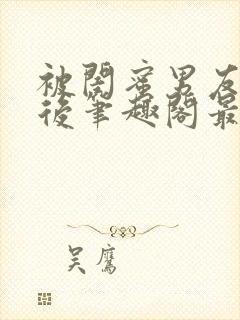 被閣蜜男友
後筆趣閣最
吳鷹